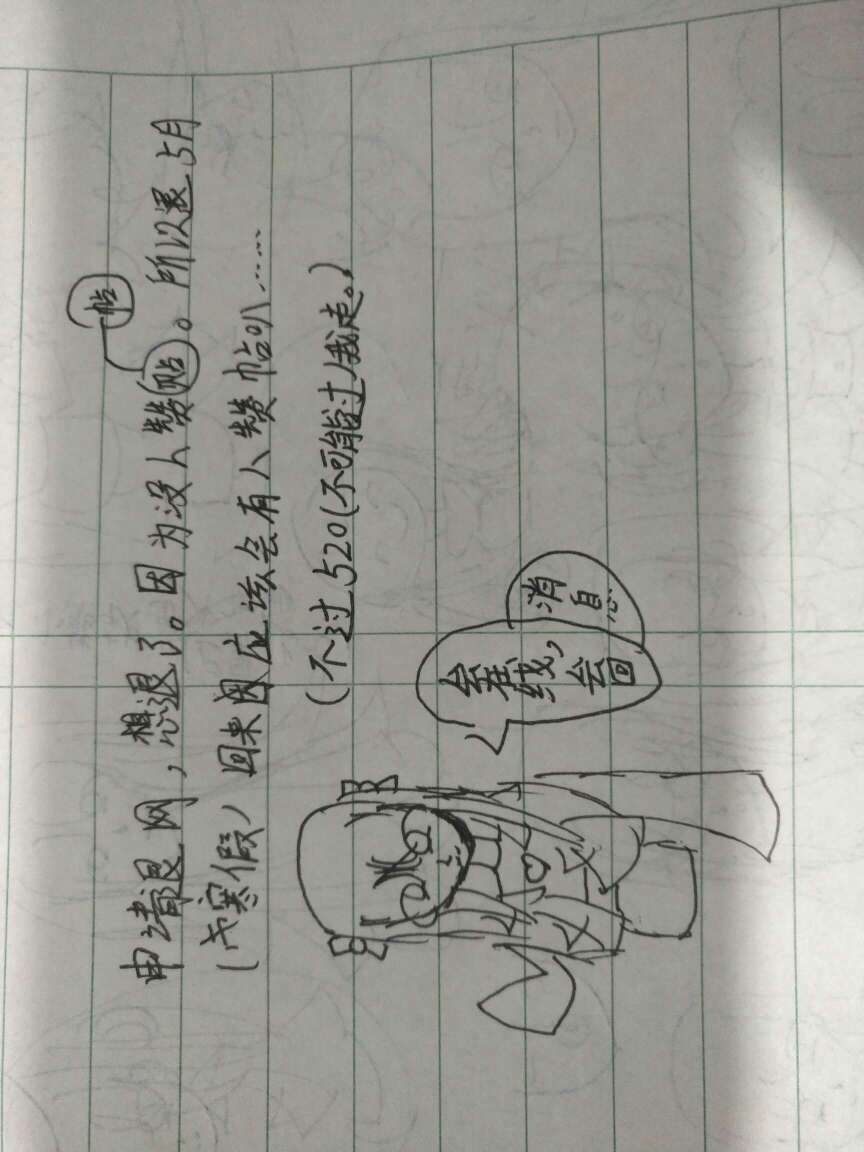 帖
申请退网,想退了。因为没人赞贴。所以退5月
(或寒假)回来因应该会有人赞帖叭……
(不过520(不可能过)我走。)
会在线,会回
消息